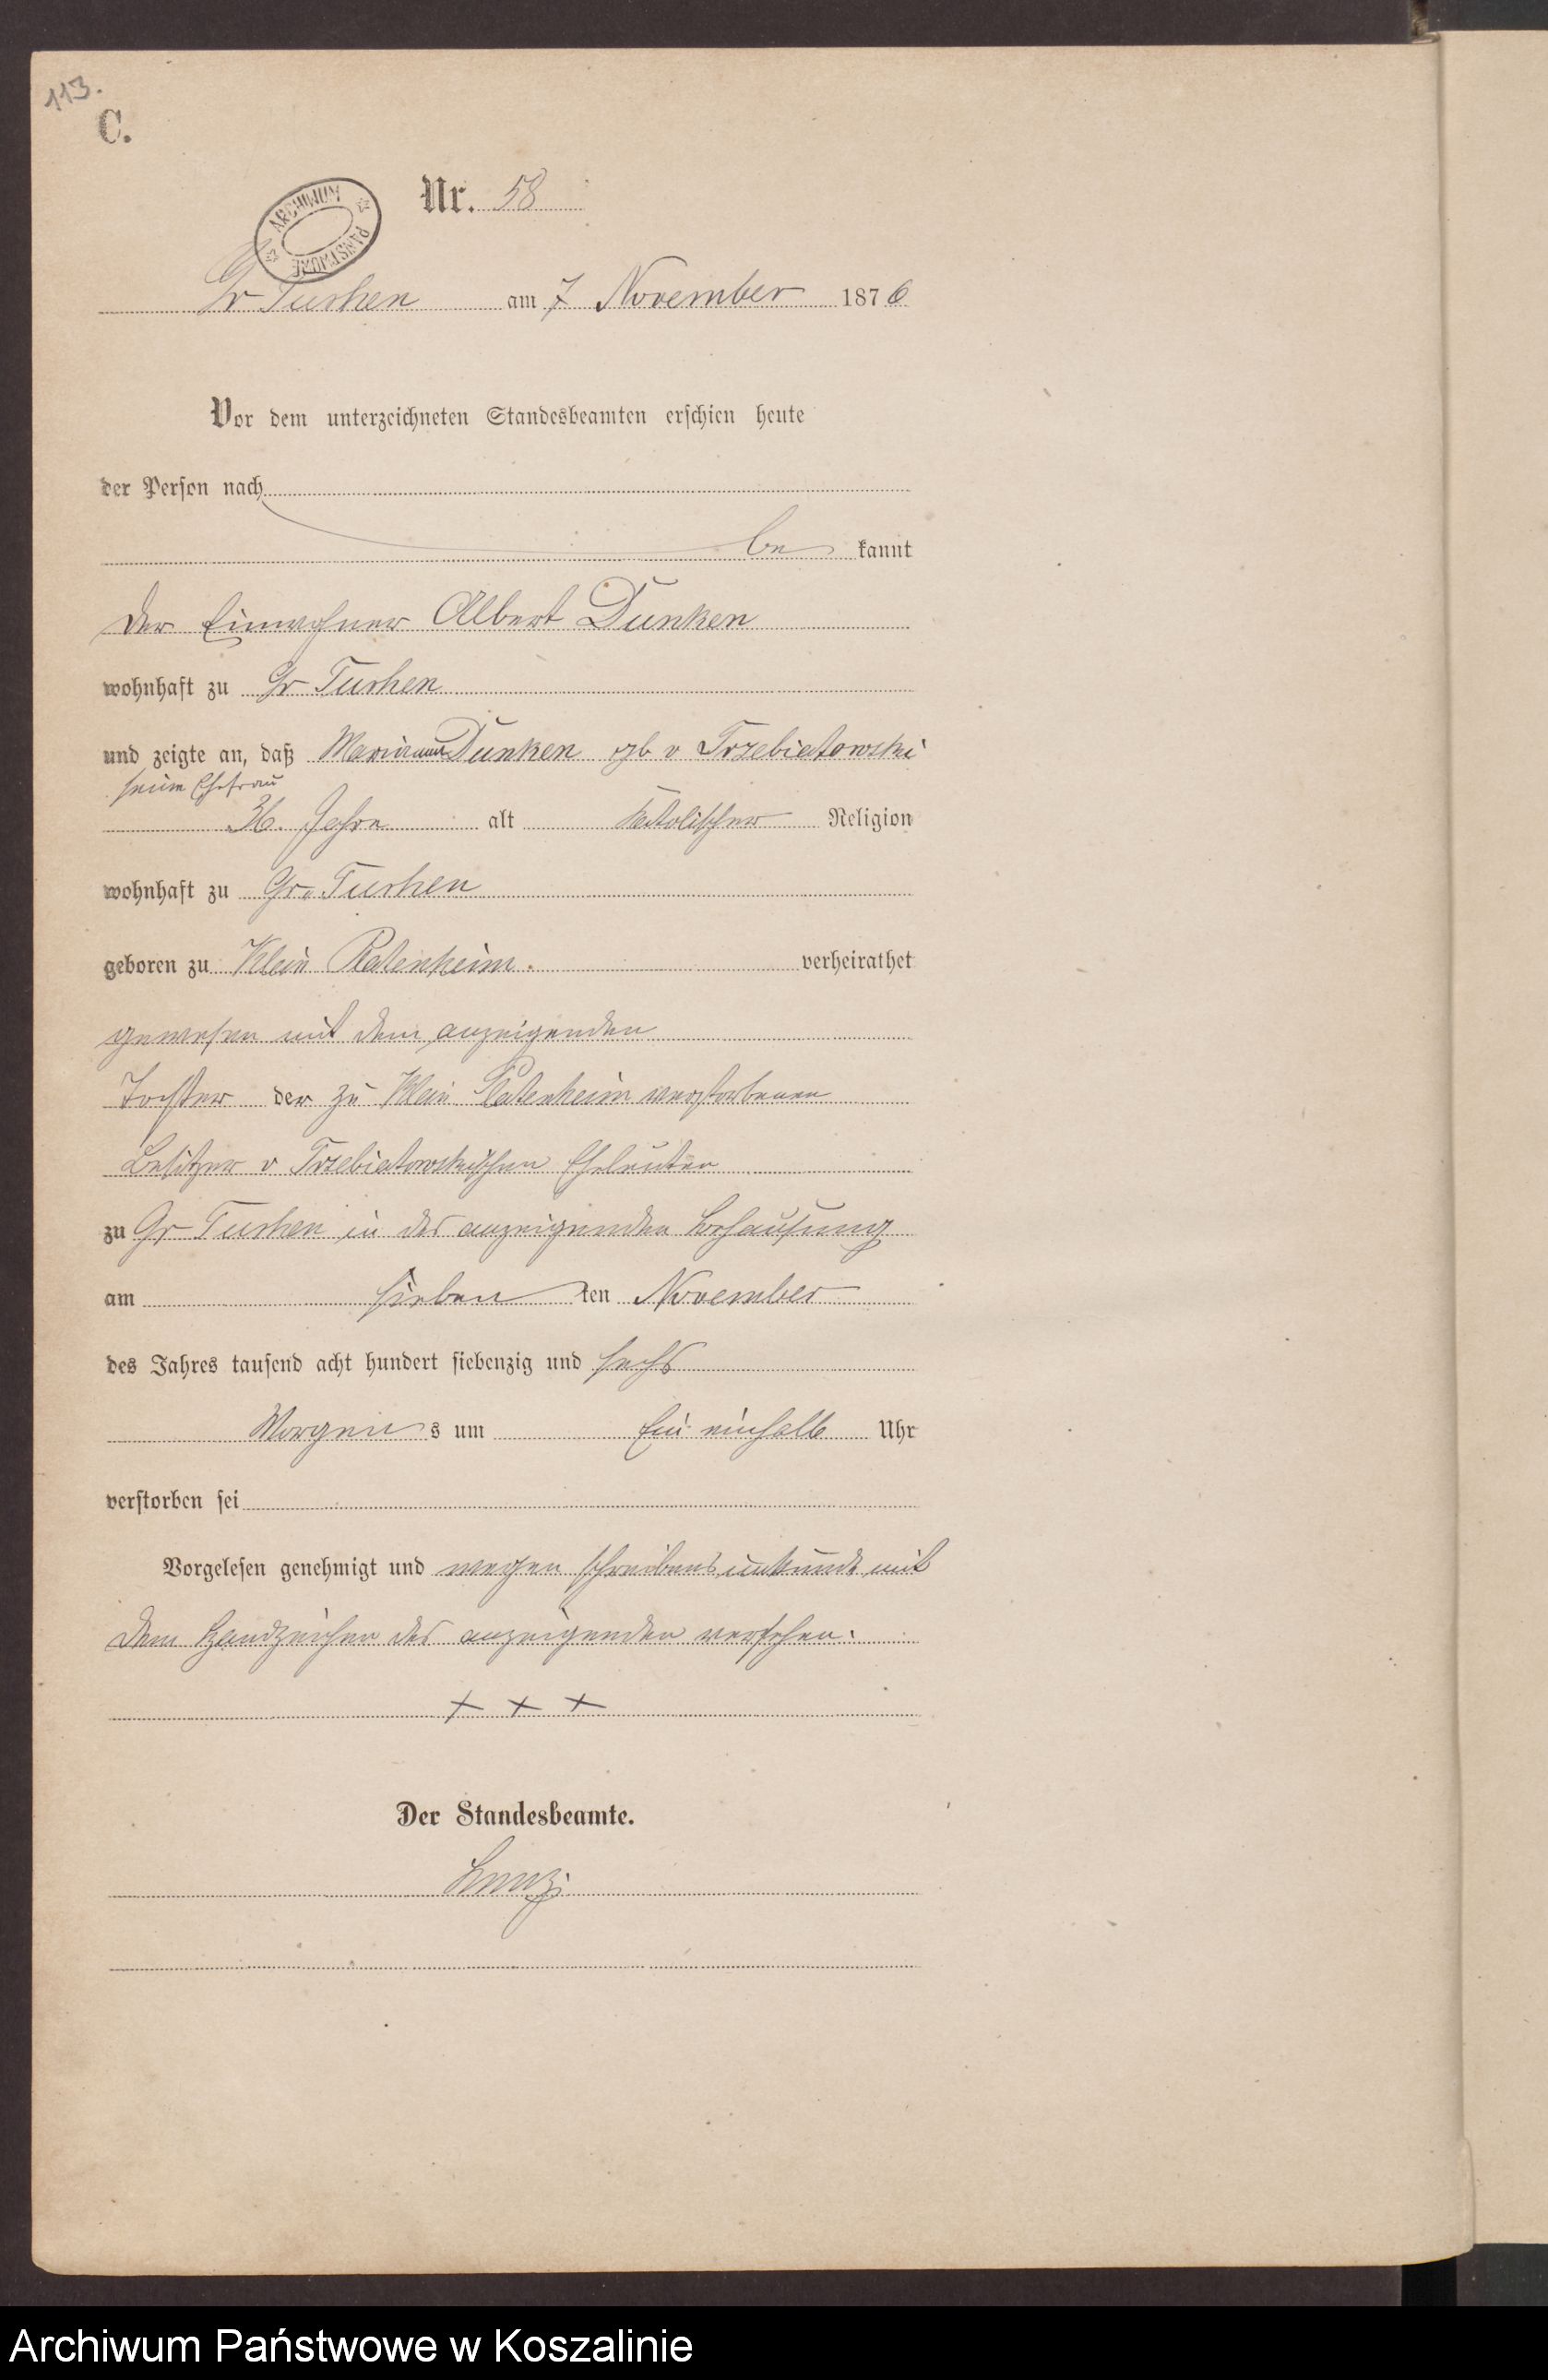 113.
C.
Nr. 58
ARCHIWUM PAŃSTWOWE
Gr Tuchen am 7 November 1876
Vor dem unterzeichneten Standesbeamten erschien heute
der Person nach
be kannt
der Einwohner Albert Dunken
wohnhaft zu Gr Tuchen
und zeigte an, daß Marianna Dunken gb v Trzebiatowski
seine Ehefrau
36. Jahre alt katolischer Religion
wohnhaft zu Gr. Tuchen
geboren zu Klein Platenheim. verheirathet
gewesen mit dem anzeigenden
Tochter der zu Klein Platenheim verstorbenen
Besitzer v Trzebiatowskischen Eheleuten
zu Gr Tuchen in des anzeigenden Behausung
am sieben ten November
des Jahres tausend acht hundert siebenzig und sechs
Morgen s um Ein einhalb Uhr
verstorben sei
Vorgelesen genehmigt und wegen schreibensunkunde mit
dem Handzeichen des anzeigenden versehen.
+ + +
Der Standesbeamte.
Archiwum Państwowe w Koszalinie